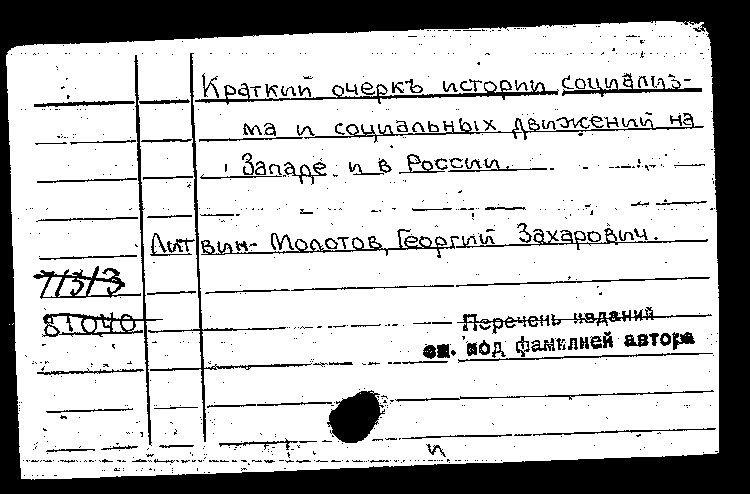 Краткий очеркъ истории социализ-
ма и социальных движений на
Западе и в России.
Литвин-Молотов, Георгий Захарович.
7/3/3
81040
Перечень изданий
см. под фамилией автора
и